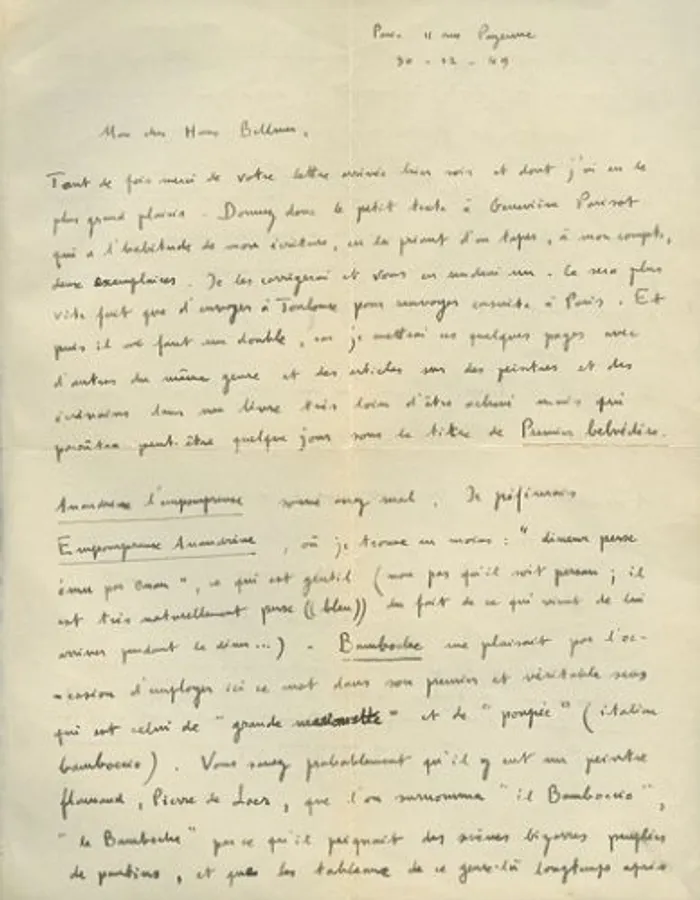 Paris 11 rue Payenne
30 - 12 - 49
Mon cher Hans Bellmer,
Tant de fois merci de votre lettre arrivée hier soir et dont j'ai eu le
plus grand plaisir. Donnez donc le petit texte à Geneviève Parisot
qui a l'habitude de mon écriture, en la priant d'en taper, à mon compte,
deux exemplaires. Je les corrigerai et vous en rendrai un. Ce sera plus
vite fait que d'envoyer à Toulouse pour renvoyer ensuite à Paris. Et
puis il me faut un double, car je mettrai ces quelques pages avec
d'autres du même genre et des articles sur des peintres et des
écrivains dans un livre très loin d'être achevé mais qui
paraîtra peut-être quelque jour sous le titre de Premier belvédère.
l'empompreuse sonne assez mal. Je préférerais
Empompreuse, où je trouve en moins : "dineur perse
ému par", ce qui est gentil (non pas qu'il soit persan ; il
est très naturellement perse ((bleu)) du fait de ce qui vient de lui
arriver pendant le dîner...). Bamboche me plaisait par l'oc-
casion d'employer ici ce mot dans son premier et véritable sens
qui est celui de "grande marionnette" et de "poupée" (italien
bamboccio). Vous savez probablement qu'il y eut un peintre
flamand, Pierre de Laer, que l'on surnomma "il Bamboccio",
"le Bamboche" parce qu'il peignait des scènes bizarres peuplées
de pantins, et que les tableaux de ce genre-là longtemps après